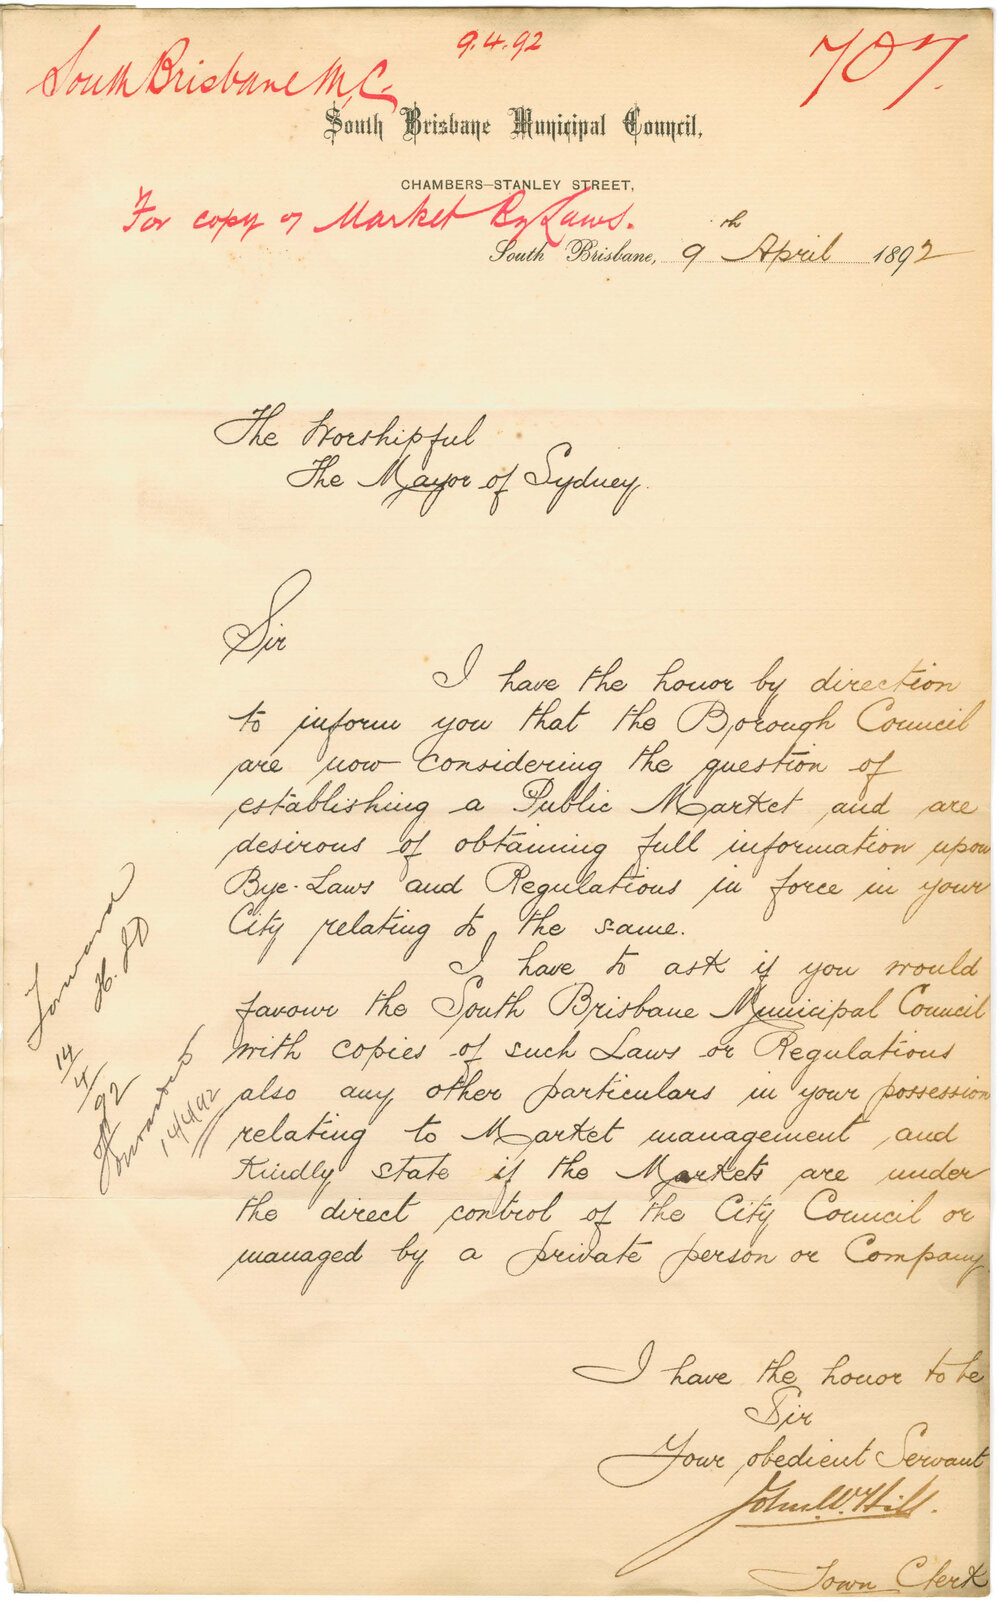 9.4.92
707.
South Brisbane M.C.
South Brisbane Municipal Council,
CHAMBERS—STANLEY STREET,
For copy of Market By Laws.
South Brisbane, 9th April 1892
The Worshipful
The Mayor of Sydney.
Sir
I have the honor by direction
to inform you that the Borough Council
are now considering the question of
establishing a Public Market and are
desirous of obtaining full information upon
Bye-Laws and Regulations in force in your
City relating to the same.
I have to ask if you would
favour the South Brisbane Municipal Council
with copies of such Laws or Regulations
also any other particulars in your possession
relating to Market management and
kindly state if the Markets are under
the direct control of the City Council or
managed by a private person or Company
I have the honor to be
Sir
Your obedient Servant
John W. Hill.
Town Clerk
Forward
14/4/92
Forwarded
14/4/92